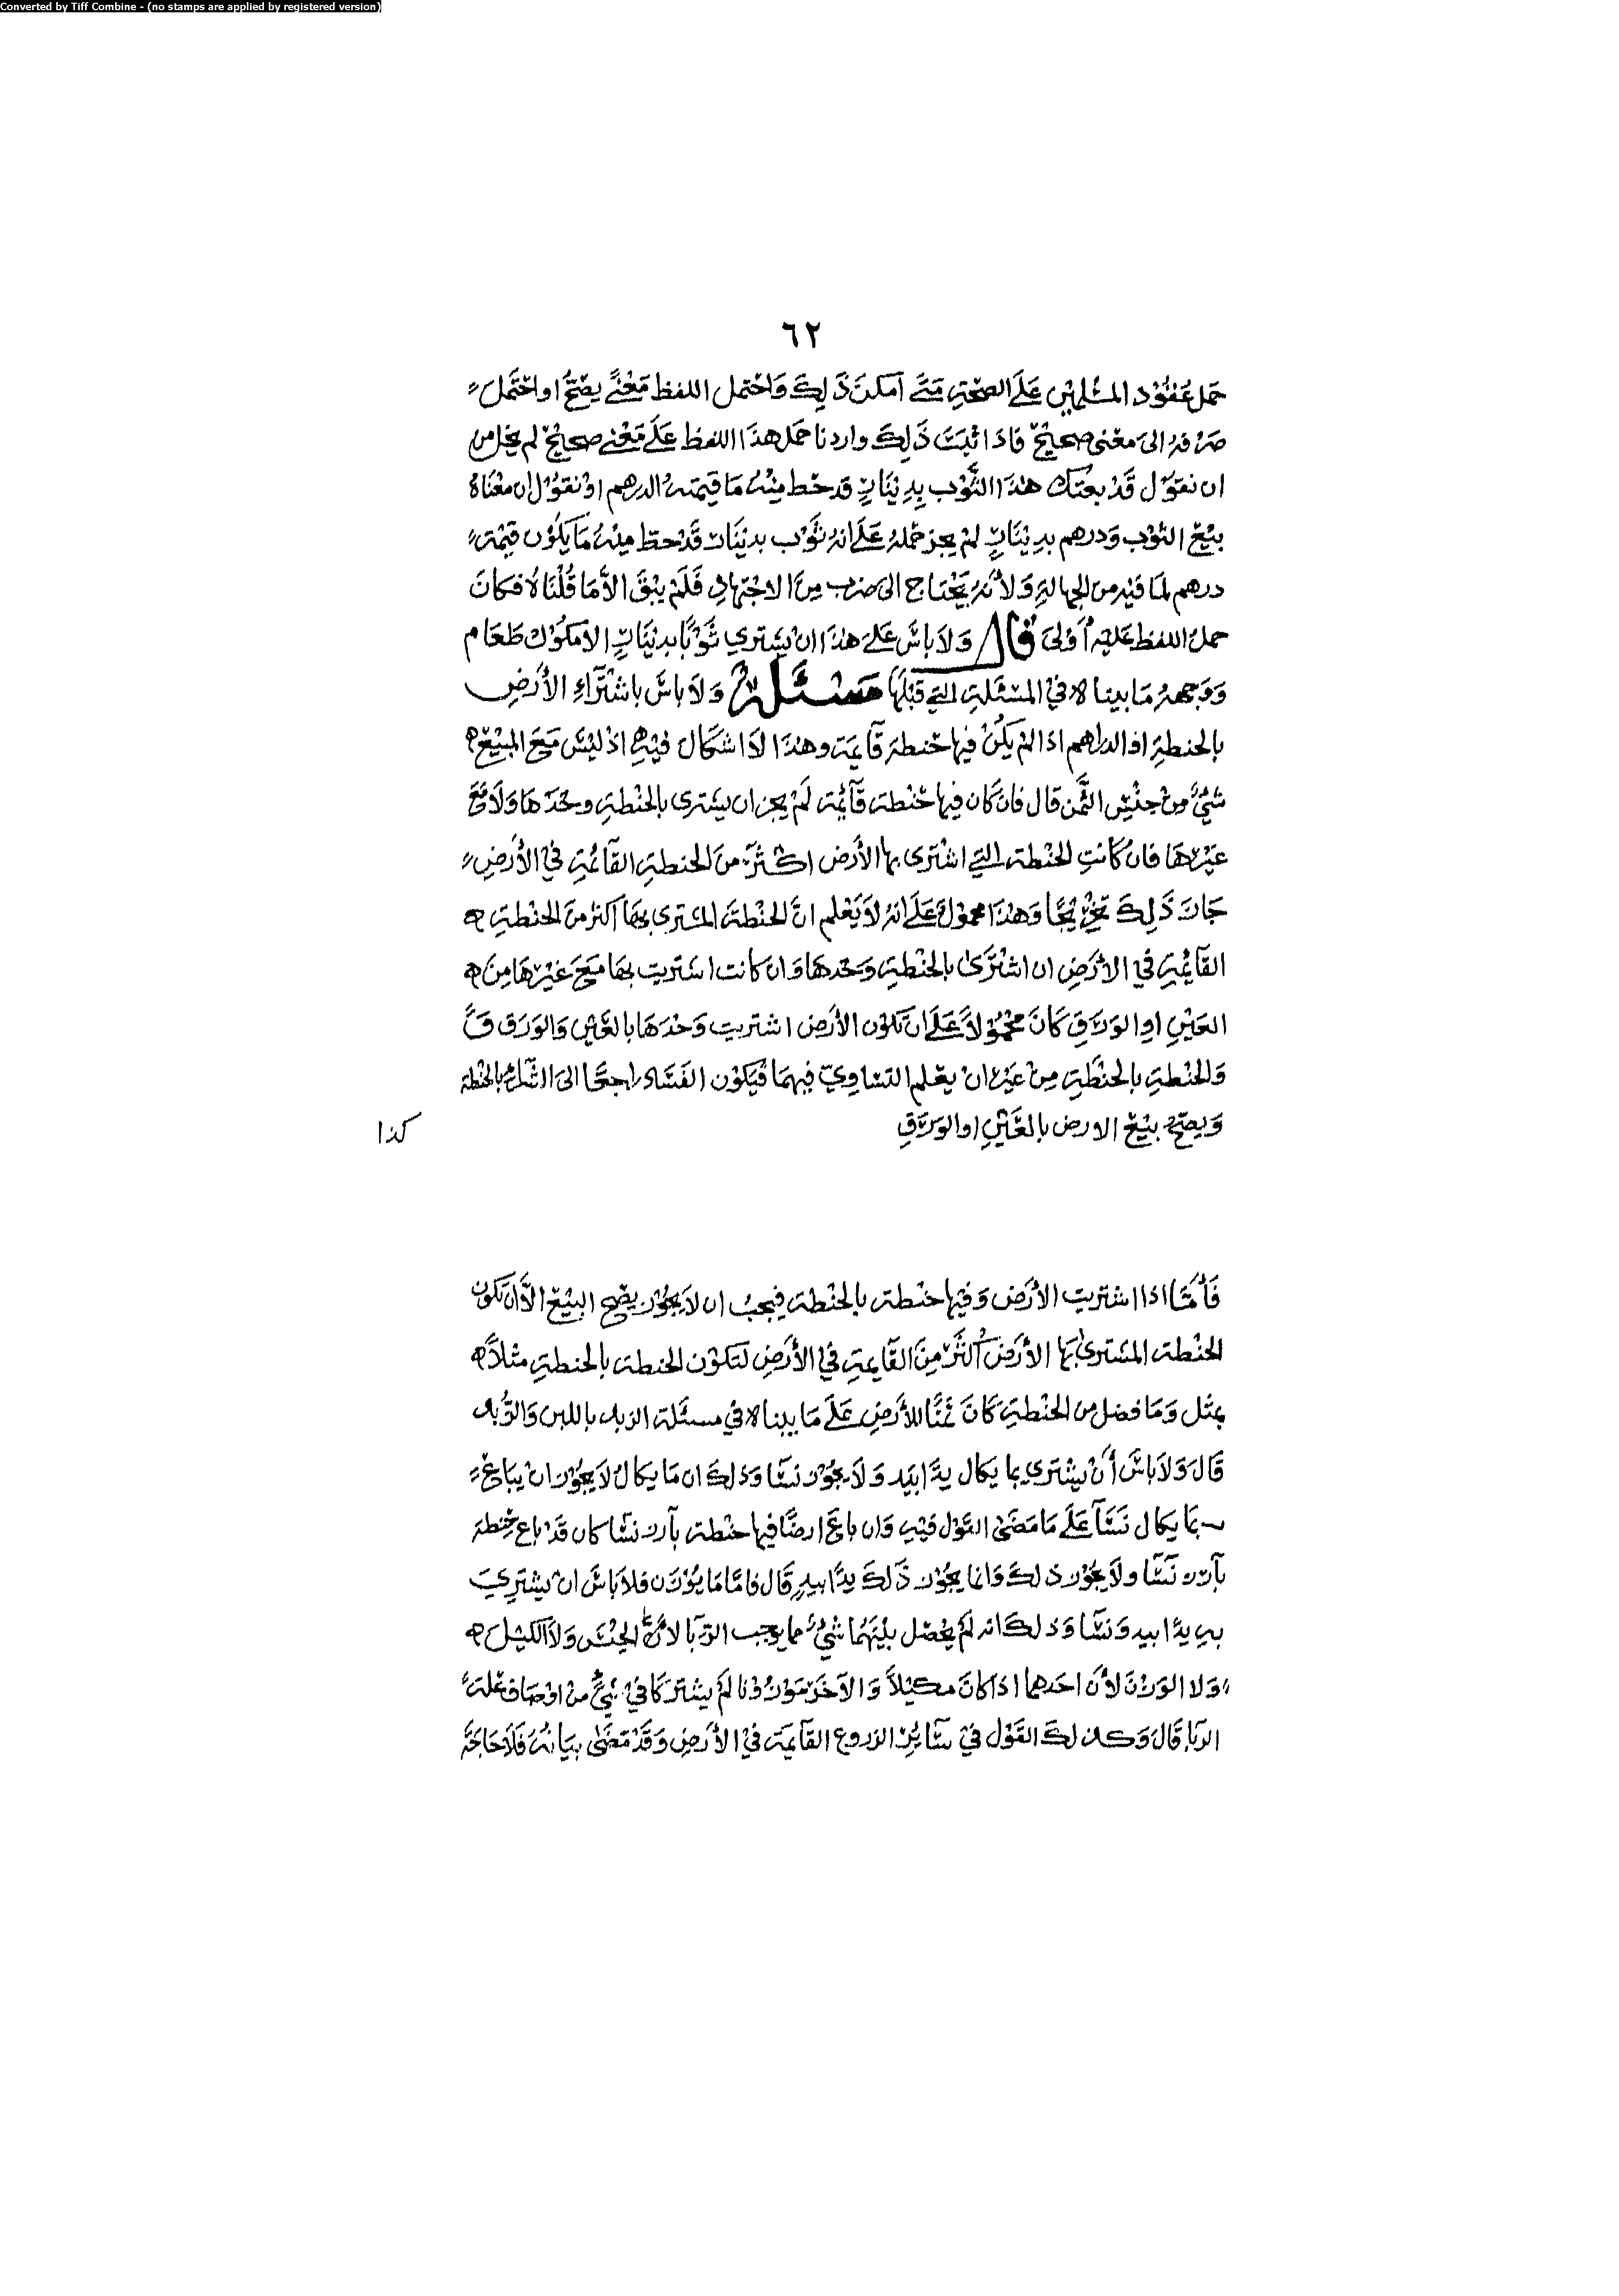 Converted by Tiff Combine - (no stamps are applied by registered version)
٦٢
حمل عُقُوْد المسُلمِيْن عَلَى الصِّحَّةِ مَتَى أمكنَ ذَلِكَ وَاحْتمل اللفظ مَعْنًى يصِّحُ او احْتَمل
صَرْفه الىَ معْنى صحيْحٌ فاذا ثَبَتَ ذَلِكَ واردنا حمل هذا اللفظ عَلَى مَعْنى صحيْحٌ لم يخل من
ان نقوْل قَدْ بعتك هٰذا الثَّوْب بِدِيْنَارٍ قد حط مِنْهُ مَا قيمته الدرهم اوْ نقوُل ان معْنَاهُ
بيْعُ الثوْب وَدرهم بدِيْنَارٍ لمْ يجز حمْلهُ عَلَى انهُ ثوْب بديْنَار قَدْ حط مِنْهُ مَا يكُوْن قيْمته
درهم لمَا فيْهِ من الجهالةِ وَلأَنهُ يَحْتاج الى ضرب مِنَ الاجْتهادِ فَلَمْ يبْقَ الاَّ مَا قُلْنَاهُ فكانَ
حملُ اللفظ عَليْهِ أَوْلىَ قال وَلا باسَ عَلى هٰذَا ان يشتري ثَوْبًا بديْنَارٍ الا مكوْك طَعَام
وَوَجههُ مَا بيناه في المسْئَلةِ التي قَبْلهَا مَسْئَلَة وَلاَ باسَ باشْتَرَاءِ الأَرْضِ
بالحنطةِ او الدراهم اذا لم يَكُنْ فيها حْنطه قآئمَة وهٰذا لاَ اشكَال فيْهِ اذْ ليْسَ مَعَ المبيْعِ
شيْءٌ مِنْ جِنْسِ الثَّمن قال فان كَان فيها حْنطة قآئمة لَمْ يجز ان يشترى بالحنْطةِ وحْدَهَا وَلاَ مَعَ
غيْرهَا فانْ كَانتِ الحنْطة التي اشْترى بها الأَرْض اكثَرَ منَ الحنطةِ القآئمةِ فيْ الأَرْضِ
جَازَ ذَلِكَ تَخرِيْجًا وَهٰذَا محموْلٌ عَلَى انهُ لاَ يَعْلم انَّ الحنْطةَ المشترى بهَا اكثرُ منَ الحنْطةِ
القآئمةِ في الأَرْضِ ان اشْتَرَىَ بالحنْطةِ وَحْدهَا وَان كانت اشتريت بهَا مَعَ غيْرهَا مِنَ
العَيْنِ اوِ الوَرَقِ كَانَ محْمُوْلاً عَلَى ان تكُوْن الأَرْض اشتريت وَحْدَهَا بالعَيْنِ وَالوَرَق
وَالحنْطةِ بالحنْطَةِ مِنْ غَيْرِ انْ يعْلم التسَاوِيْ فيهمَا فيَكوْن الفسَاد راجعًا الىَ الشرَاءِ بالحنْطة
وَيصحُّ بيْعُ الارض بالعَيْنِ او الوَرَقِ
كذا
فَأَمَّا اذا اشتريت الأَرْض وَفيْها حنطة بالحنْطة فيجبُ ان لاَ يجُوْز يصِّح البيْع الاَّ ان تكون
الحنْطة المشترىَ بهَا الأَرْض اكثَر مِنَ القآئمةِ فيْ الأَرْضِ لتكوْن الحنطة بالحنطةِ مثْلاً
بمثْل وَمَا فضل من الحنْطةِ كَانَ ثمَنًا للأَرْضِ عَلَى مَا بيناه في مسئَلة الزبد باللبن وَالزُبد
قَالَ وَلاَ باسَ أَنْ يشتري بما يكال يدًا بيَدٍ وَلاَ يجُوْز نَسَّا وَذلكَ ان مَا يكالُ لاَ يجُوْز انْ يبَاعَ
بمَا يكال نَسَّا عَلَى مَا مَضَىْ القَوْل فيْهِ وَان باعَ ارضًا فيها حنْطة بأرز نسَّا كان قَدْ باع حْنطة
بأرز نَسَّا ولاَ يجُوْز ذلكَ وَانما يجُوْز ذَلكَ يدًا بيدٍ قَال فامَّا مَا يوْزَن فلاَ باسَ انْ يشتري
بهِ يدًا بيد وَنسَّا وَذلكَ انه لَمْ يحْصل بيْنَهُمَا شيْءٌ مما يوجب الرِّبَا لا الجِنْس وَلاَ الكيْل
وَلا الوَزْنَ لأَن احَدهما اذا كَانَ مكيْلاً وَالآخَر مَوْزُوْنا لَمْ يشتَركَا فيْ شيْءٍ منْ اوْصَاف عْلة
الربَا قَالَ وَكذلكَ القَوْل فيْ سَآئِر الزروع القآئمة فيْ الأَرْضِ وَقَدْ مَضَىَ بيَانهُ فَلاَ حَاجَةَ